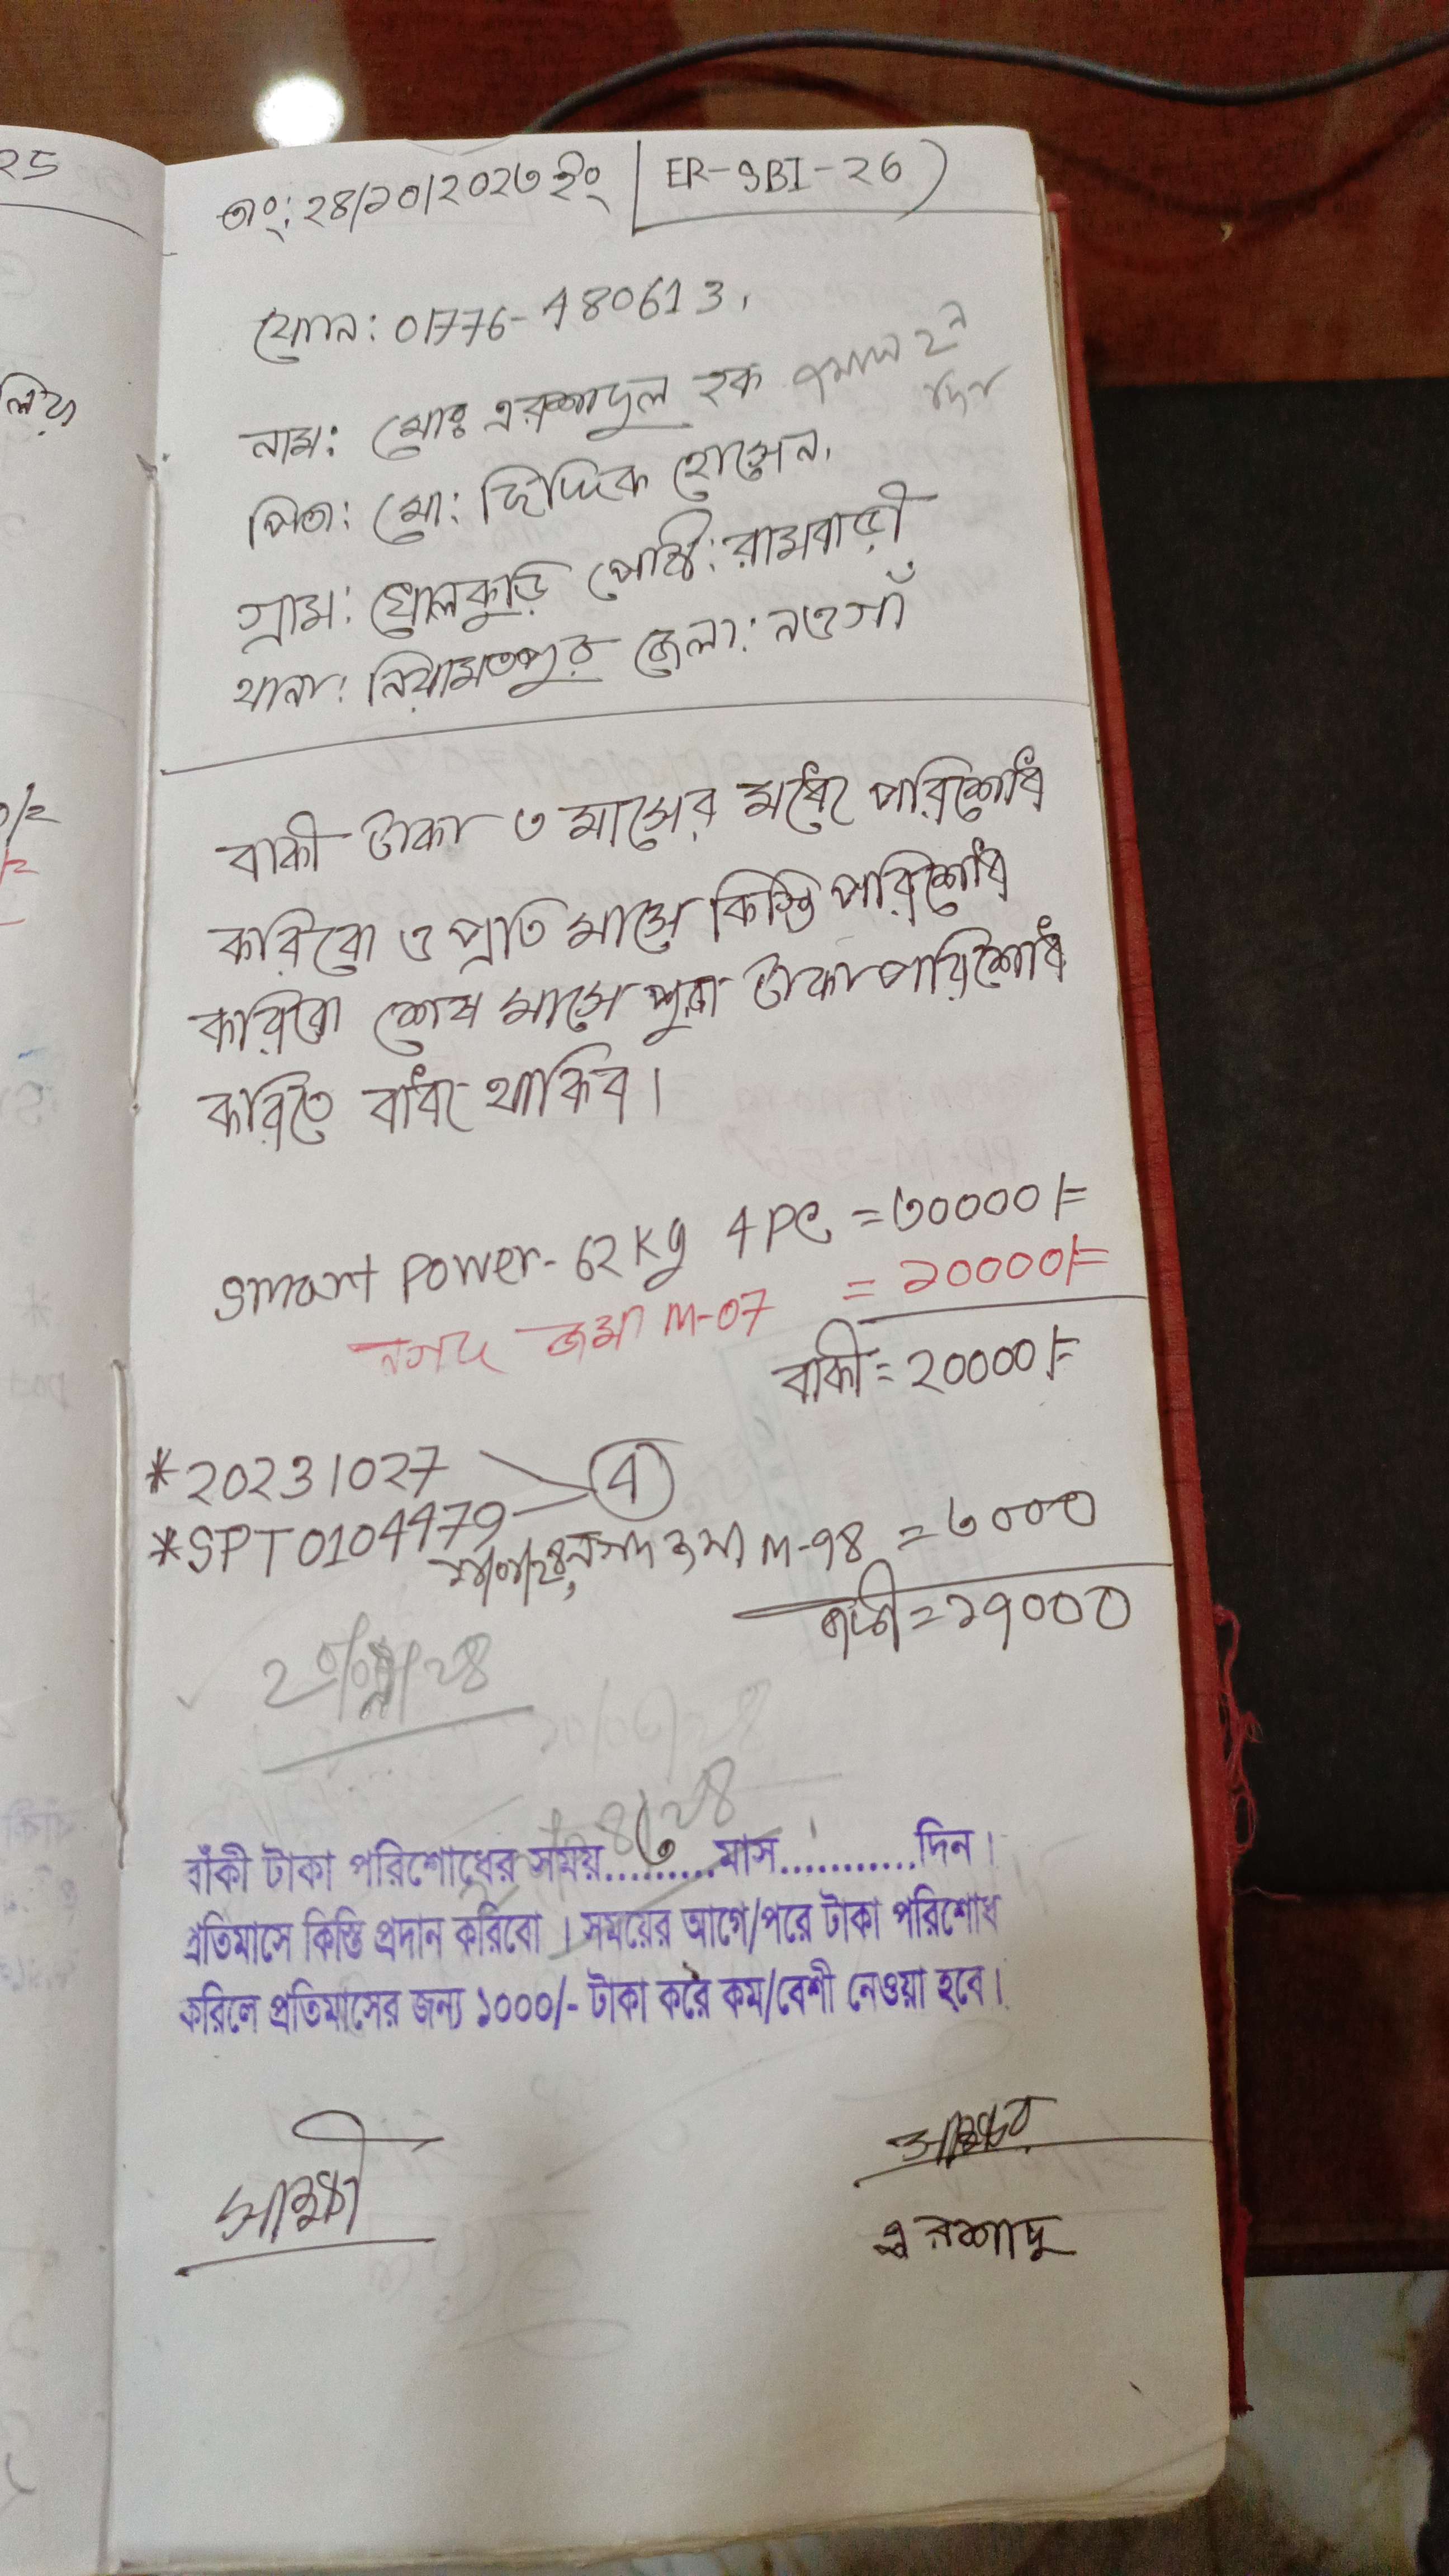 তাং: ২৪/১০/২০২৩ ইং
ER-SBI-26
ফোন: 01776-480613,
নাম: মোঃ এরশাদুল হক
পিতা: মো: ছিদ্দিক হোসেন,
গ্রাম: ঘোলকুড়ি পোষ্ট: রামবাড়ী
থানা: নিয়ামতপুর জেলা: নওগাঁ
বাকী টাকা ৩ মাসের মধ্যে পরিশোধ
করিবো ও প্রতি মাসে কিস্তি পরিশোধ
করিবো শেষ মাসে পুরা টাকা পরিশোধ
করিতে বাধ্য থাকিব।
Smart Power-62Kg 4PC =৩০০০০/=
নগদ জমা M-07 =১০০০০/=
বাকী=২০০০০/=
*20231027
*SPT0104479
4
নগদ জমা M-৭৪ =৩০০০
বাকী=১৭০০০
বাঁকী টাকা পরিশোধের সময়.........৩.........মাস............দিন।
প্রতিমাসে কিস্তি প্রদান করিবো । সময়ের আগে/পরে টাকা পরিশোধ
করিলে প্রতিমাসের জন্য ১০০০/- টাকা করে কম/বেশী নেওয়া হবে।
সাক্ষী
স্বাক্ষর
এরশাদু